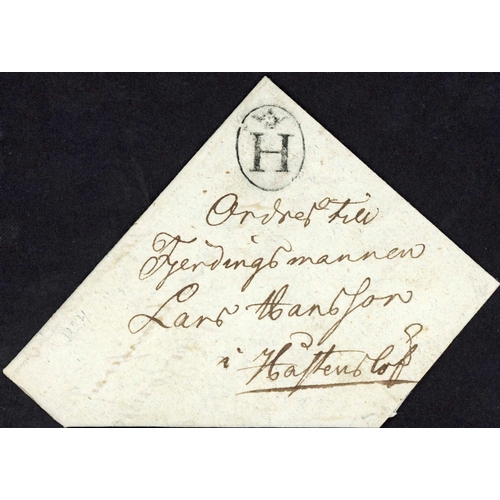 H
Ordres till
Fjerdingsmannen
Lars Hansson
i Håstenslöf